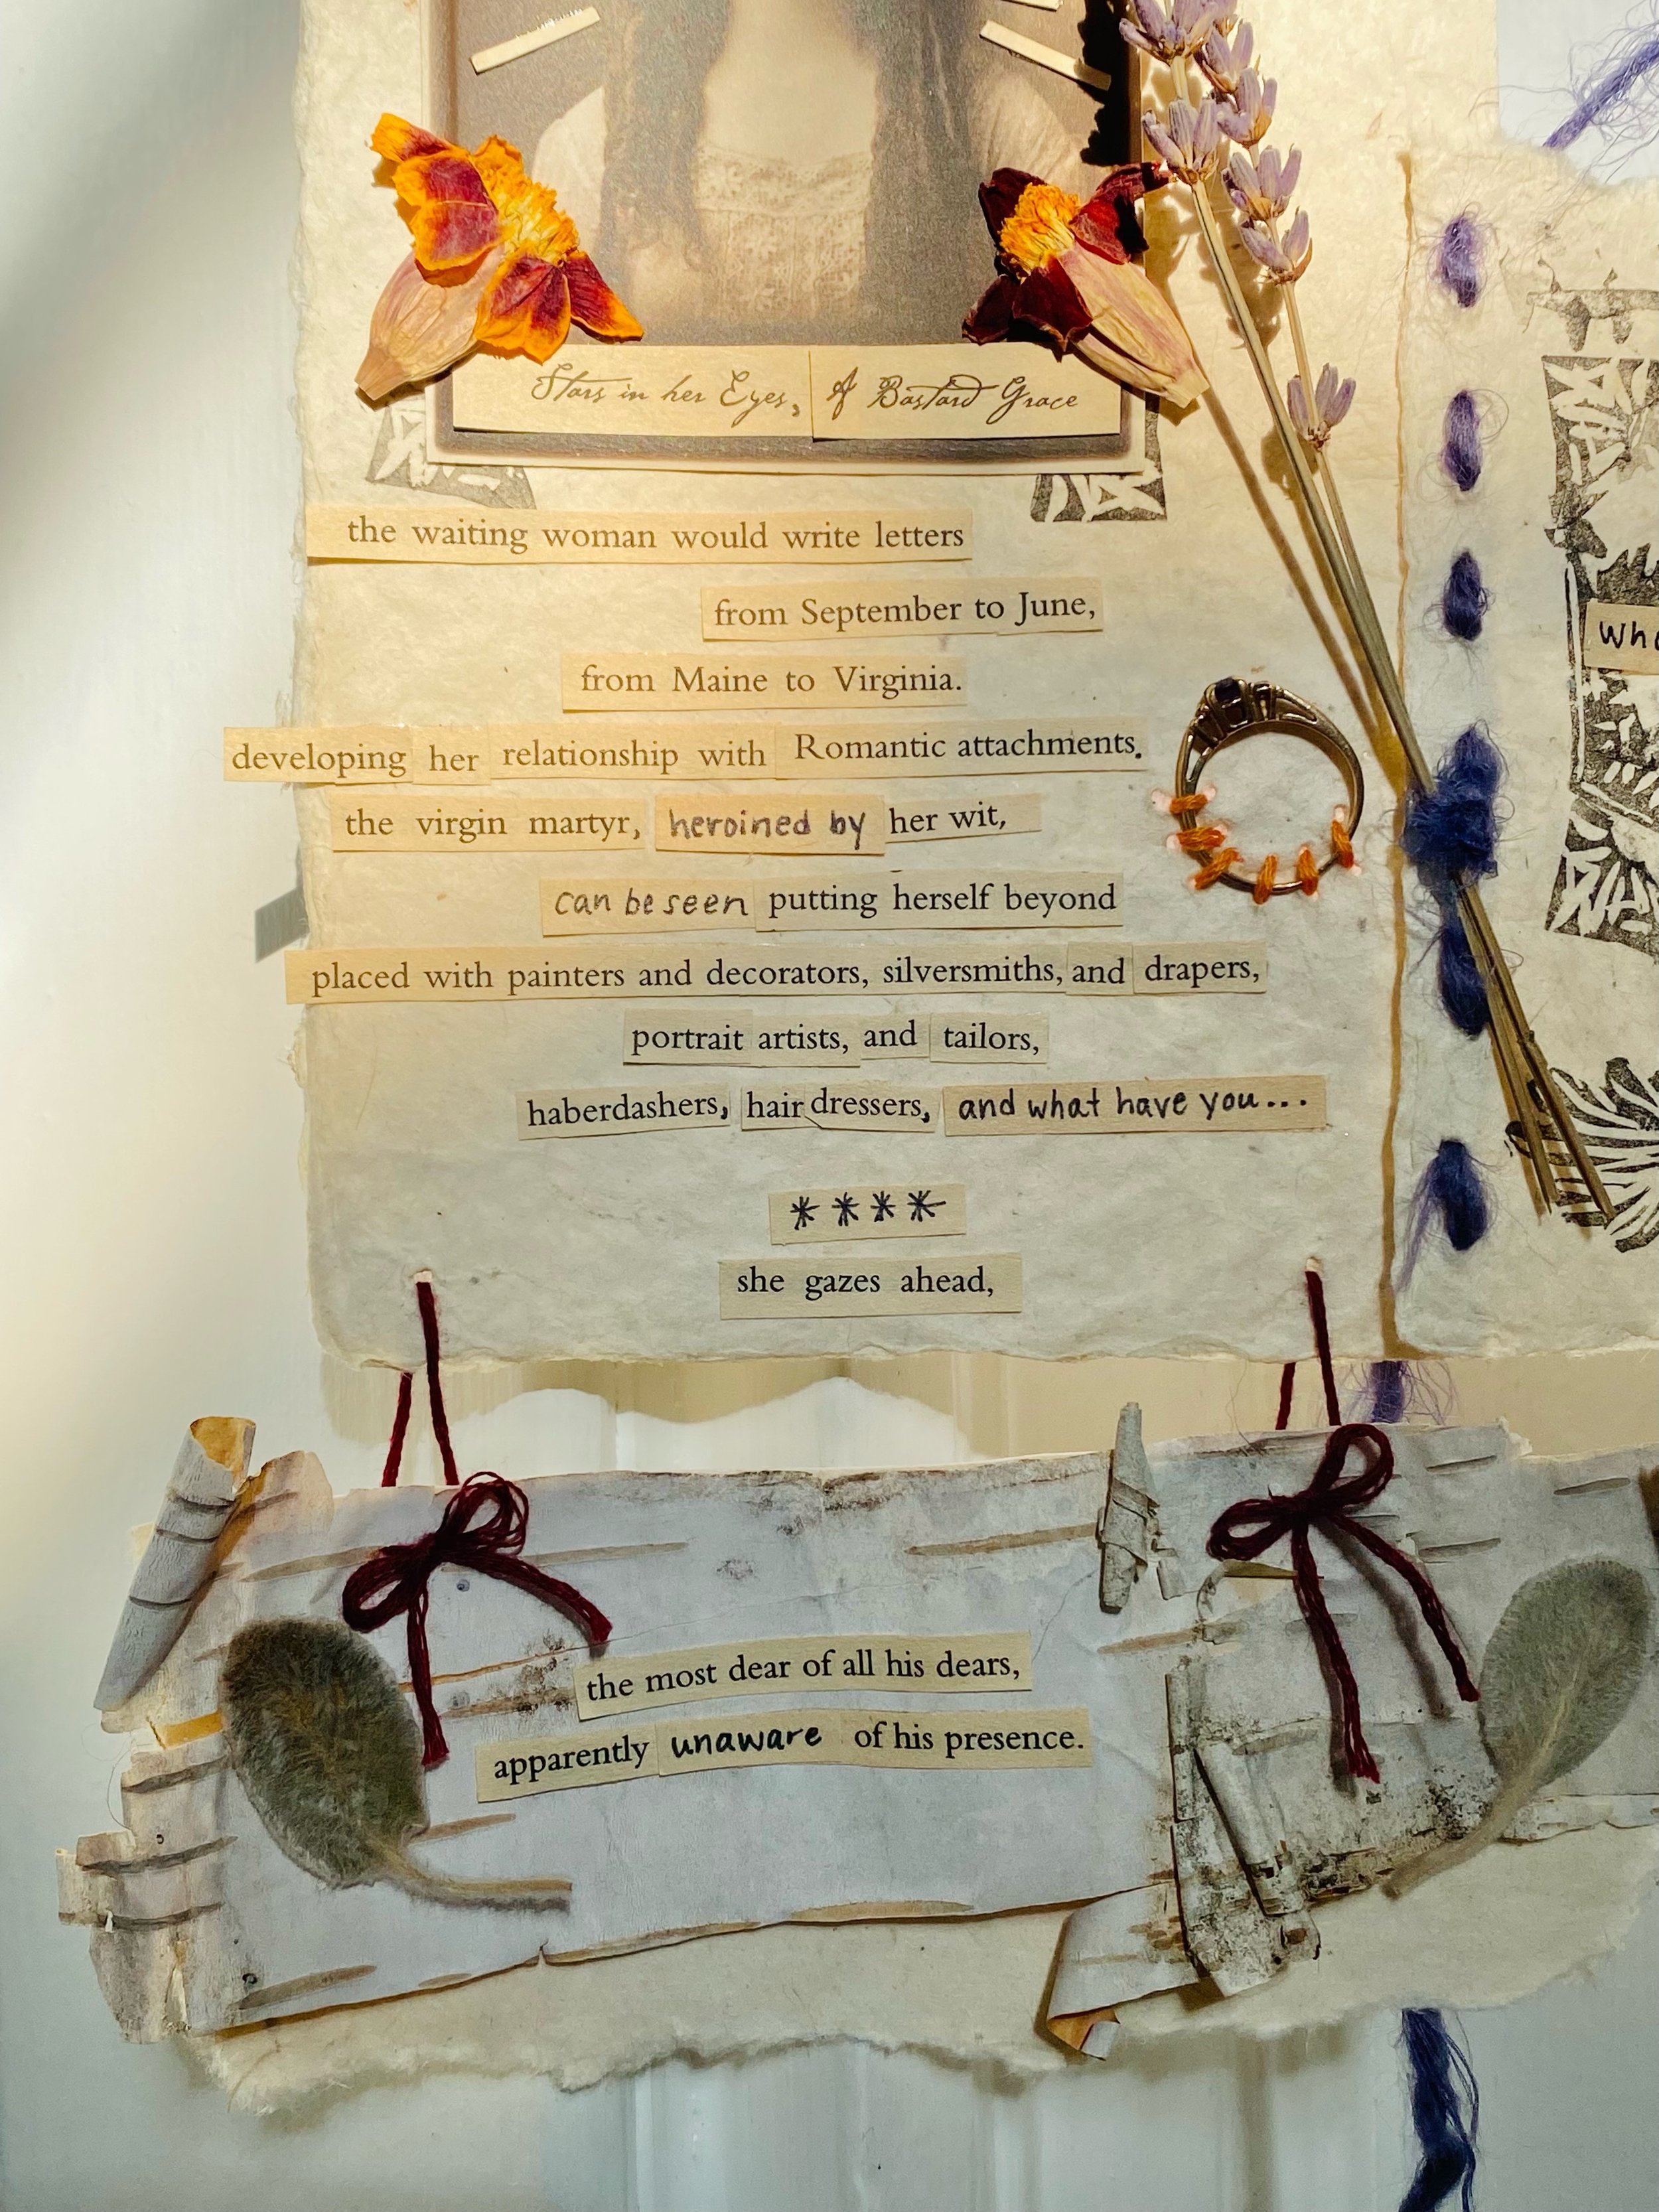 Stars in her Eyes, A Bastard Grace
the waiting woman would write letters
from September to June,
from Maine to Virginia.
developing her relationship with Romantic attachments.
the virgin martyr, heroined by her wit,
can be seen putting herself beyond
placed with painters and decorators, silversmiths, and drapers,
portrait artists, and tailors,
haberdashers, hairdressers, and what have you...
****
she gazes ahead,
the most dear of all his dears,
apparently unaware of his presence.